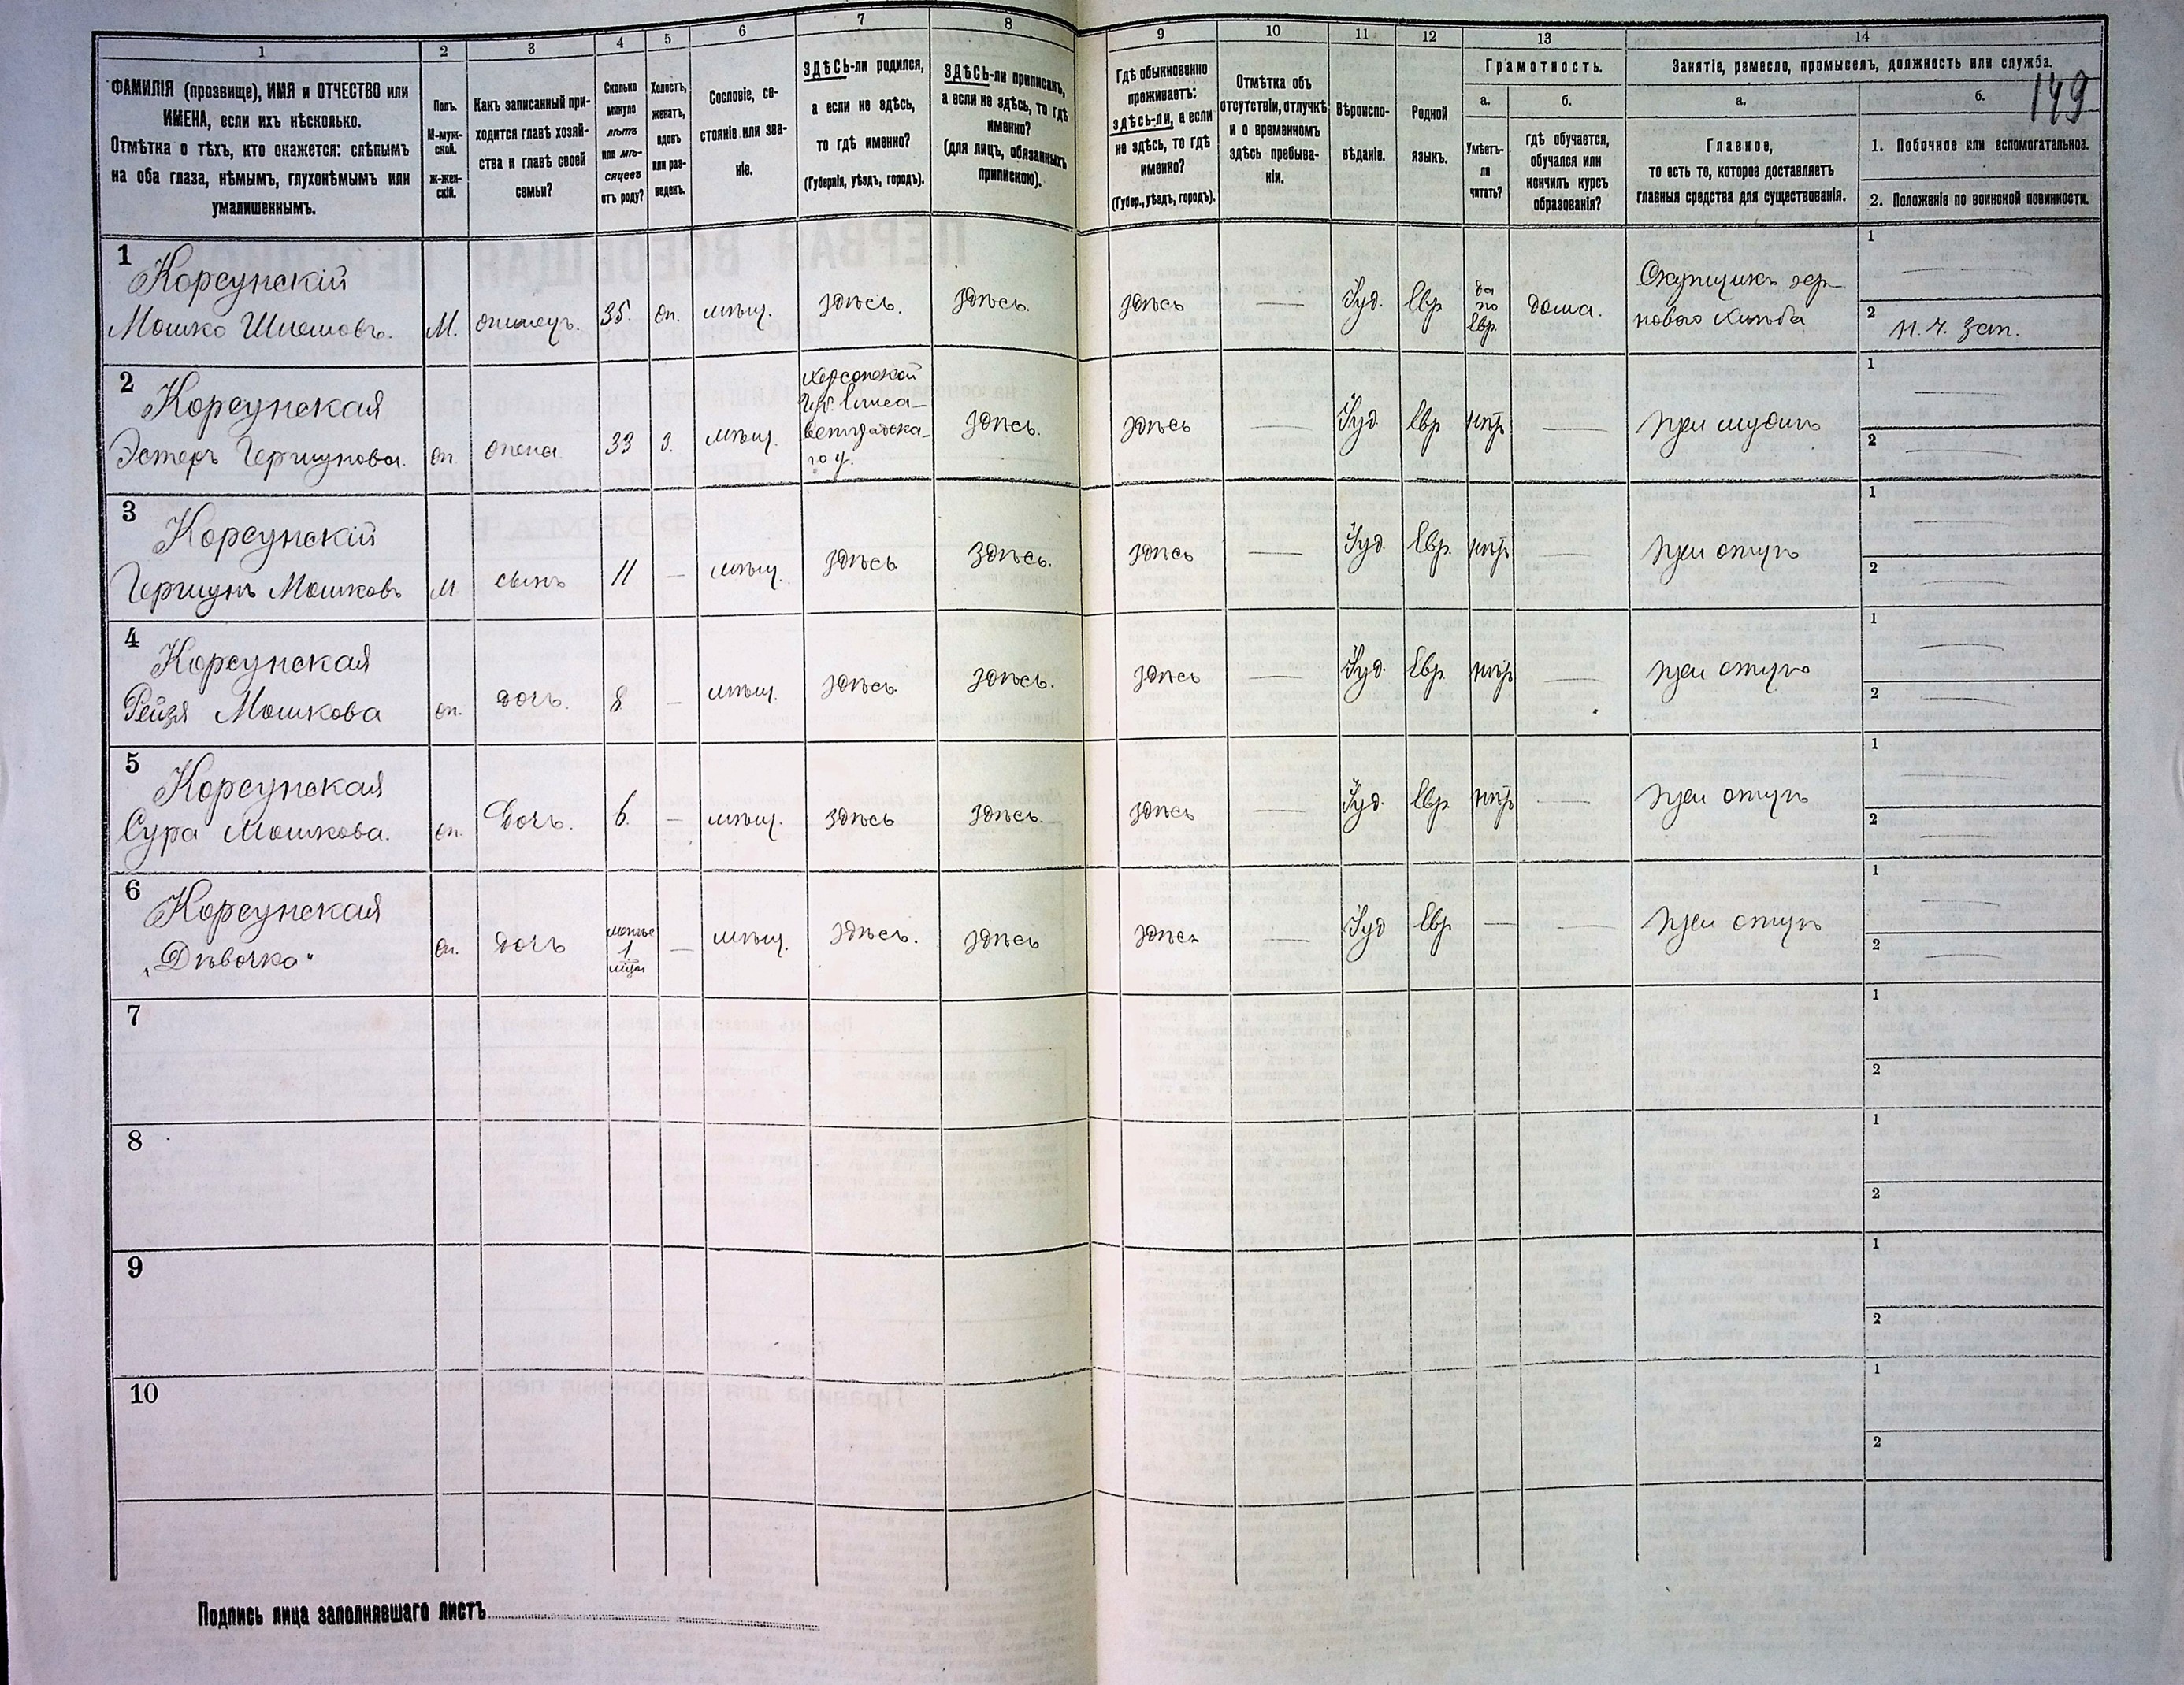 149
1 2 3 4 5 6 7 8 9 10 11 12 13 14
ФАМИЛІЯ (прозвище), ИМЯ и ОТЧЕСТВО или
ИМЕНА, если ихъ нѣсколько.
Отмѣтка о тѣхъ, кто окажется: слѣпымъ
на оба глаза, нѣмымъ, глухонѣмымъ или
умалишеннымъ.
Полъ.
М-муж-
ской.
Ж-жен-
скій.
Какъ записанный при-
ходится главѣ хозяй-
ства и главѣ своей
семьи?
Сколько
минуло
лѣтъ
или мѣ-
сяцевъ
отъ роду?
Холостъ,
женатъ,
вдовъ
или раз-
веденъ.
Сословіе, со-
стояніе или зва-
ніе.
ЗДѢСЬ-ли родился,
а если не здѣсь,
то гдѣ именно?
(Губернія, уѣздъ, городъ).
ЗДѢСЬ-ли приписанъ,
а если не здѣсь, то гдѣ
именно?
(для лицъ, обязанныхъ
припискою).
Гдѣ обыкновенно
проживаетъ:
здѣсь-ли, а если
не здѣсь, то гдѣ
именно?
(Губер., уѣздъ, городъ).
Отмѣтка объ
отсутствіи, отлучкѣ
и о временномъ
здѣсь пребыва-
ніи.
Вѣроиспо-
вѣданіе.
Родной
языкъ.
Грамотность.
а.
Умѣетъ-
ли
читать?
б.
гдѣ обучается,
обучался или
кончилъ курсъ
образованія?
Занятіе, ремесло, промыселъ, должность или служба.
а.
Главное,
то есть то, которое доставляетъ
главныя средства для существованія.
б.
1. Побочное или вспомогательное.
2. Положеніе по воинской повинности.
1
Корсунскій
Мошко Шмошовъ. М. 35. мѣщ. здѣсь. здѣсь. здѣсь — Іуд. Евр да
по
Евр. дома. Скупщикъ зер-
нового хлѣба
1 —
2 н. ч. зап.
2
Корсунская
Эстеръ Гершунова. ж. жена. 33 з. мѣщ. Херсонской
Губ. Елиса-
ветградска-
го у. здѣсь. здѣсь — Іуд Евр нѣтъ — при мужѣ
1 —
2 —
3
Корсунскій
Гершунъ Мошковъ М сынъ 11 — мѣщ. здѣсь здѣсь. здѣсь — Іуд. Евр. нѣтъ — при отцѣ
1 —
2 —
4
Корсунская
Рейзя Мошкова ж. дочь. 8 — мѣщ. здѣсь здѣсь. здѣсь — Іуд. Евр нѣтъ — при отцѣ
1 —
2 —
5
Корсунская
Сура Мошкова. ж. Дочь. 6. — мѣщ. здѣсь здѣсь. здѣсь — Іуд. Евр. нѣтъ — при отцѣ
1 —
2 —
6
Корсунская
„Дѣвочка" ж. дочь менѣе
1
мѣц — мѣщ. здѣсь. здѣсь здѣсь — Іуд Евр — — при отцѣ
1 —
2 —
7
1
2
8
1
2
9
1
2
10
1
2
Подпись лица заполнявшаго листъ